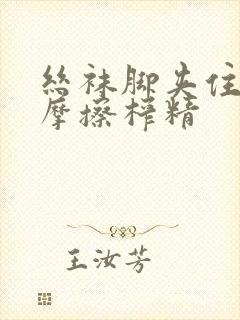 丝袜脚夹住
摩擦榨精
王汝芳